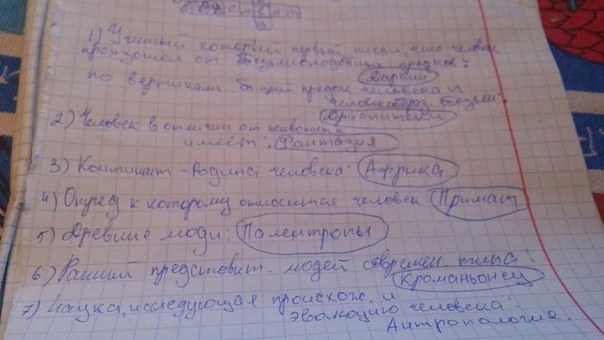 1) Учёный который первый писал, что человек
произошёл от безьяноподобных предков:
Дарвин
по вертикали: общий предок человека и
человекообраз. безьян:
Дриопитеки
2) Человек в отличии от животных
имеет: Фантазия
3) Континент - родина человека: Африка
4) Отряд к которому относится человек: Примат
5) Древние люди: Палентропы
6) Ранний представит. людей соврем. типа:
Кроманьонец
7) Наука, исследующая происхож. и
эволюцию человека:
Антропология.